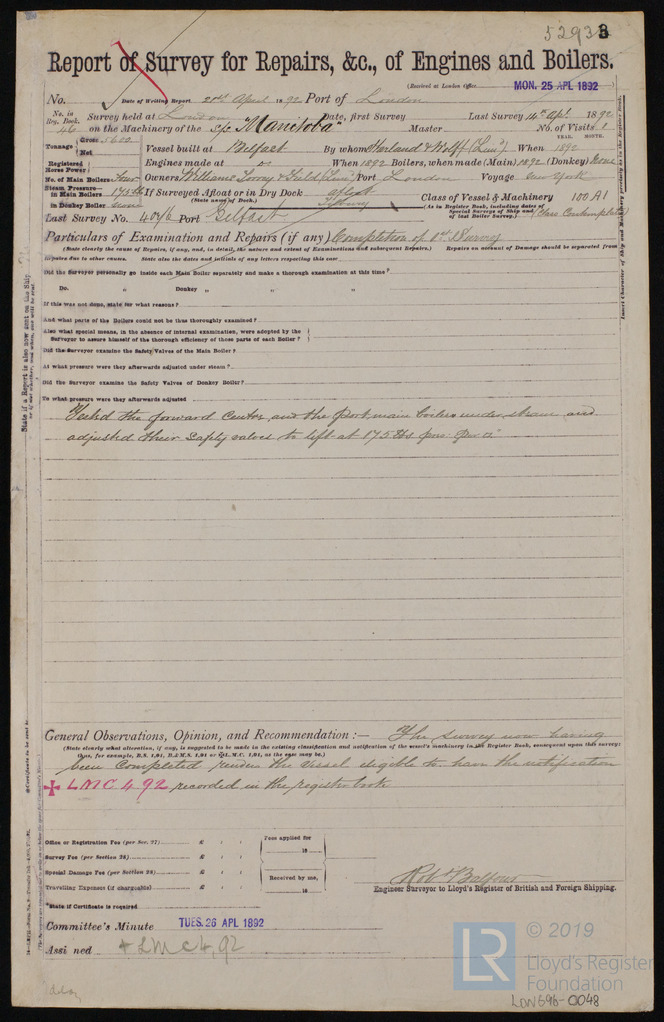 52933
Report of Survey for Repairs, &c., of Engines and Boilers.
(Received at London Office MON. 25 APL 1892
No. Date of Writing Report 20th April 1892 Port of London
No. in Reg. Book. 46 Survey held at London Date, first Survey Last Survey 14th Apl. 1892
on the Machinery of the S/s "Manitoba" Master No. of Visits 1
Tonnage Gross 5600 Net Vessel built at Belfast By whom Harland & Wolff (Lim'd) When 1892 YEAR. MONTH.
Registered Horse Power Engines made at do When 1892 Boilers, when made (Main) 1892 (Donkey) None
No. of Main Boilers Four Owners Williams Torrey & Field (Lim'd) Port London Voyage New York
Steam Pressure in Main Boilers 175 lb If Surveyed Afloat or in Dry Dock afloat Class of Vessel & Machinery 100 A1
in Donkey Boiler None (State name of Dock.) Tilbury (As in Register Book, including dates of Special Surveys of Ship and of last Boiler Survey.) (Class Contemplated)
Last Survey No. 4046 Port Belfast
Particulars of Examination and Repairs (if any) Completion of 1st Survey
(State clearly the cause of Repairs, if any, and, in detail, the nature and extent of Examinations and subsequent Repairs.) Repairs on account of Damage should be separated from
Repairs due to other causes. State also the dates and initials of any letters respecting this case
Did the Surveyor personally go inside each Main Boiler separately and make a thorough examination at this time?
Do. " Donkey " " "
If this was not done, state for what reasons?
And what parts of the Boilers could not be thoroughly examined?
Also what special means, in the absence of internal examination, were adopted by the
Surveyor to assure himself of the thorough efficiency of those parts of each Boiler?
Did the Surveyor examine the Safety Valves of the Main Boiler?
At what pressure were they afterwards adjusted under steam?
Did the Surveyor examine the Safety Valves of Donkey Boiler?
To what pressure were they afterwards adjusted
Tested the forward Center, and the Port main boilers under steam and
adjusted their Safety valves to lift at 175 lbs per sq. in.
General Observations, Opinion, and Recommendation :— The survey now having
(State clearly what alteration, if any, is suggested to be made in the existing classification and notification of the vessel's machinery in the Register Book, consequent upon this survey;
thus, for example, B.S. 1,91, B.&M.S. 1,91 or L.M.C. 1,91, as the case may be.)
been completed renders the vessel eligible to have the notification
+ LMC 4 92 recorded in the register book
Office or Registration Fee (per Sec. 27) £ Fees applied for
Survey Fee (per Section 28) £ 18
Special Damage Fee (per Section 28) £ Received by me,
Travelling Expenses (if chargeable) £ 18
Robt Balfour
Engineer Surveyor to Lloyd's Register of British and Foreign Shipping.
*State if Certificate is required
Committee's Minute TUES. 26 APL 1892
Assigned + LMC 4,92
© 2019
LR
Lloyd's Register
Foundation
LDN696-0048
State if a Report is also now sent on the Ship
Insert Character of Ship and Machinery precisely as in the Register Book.